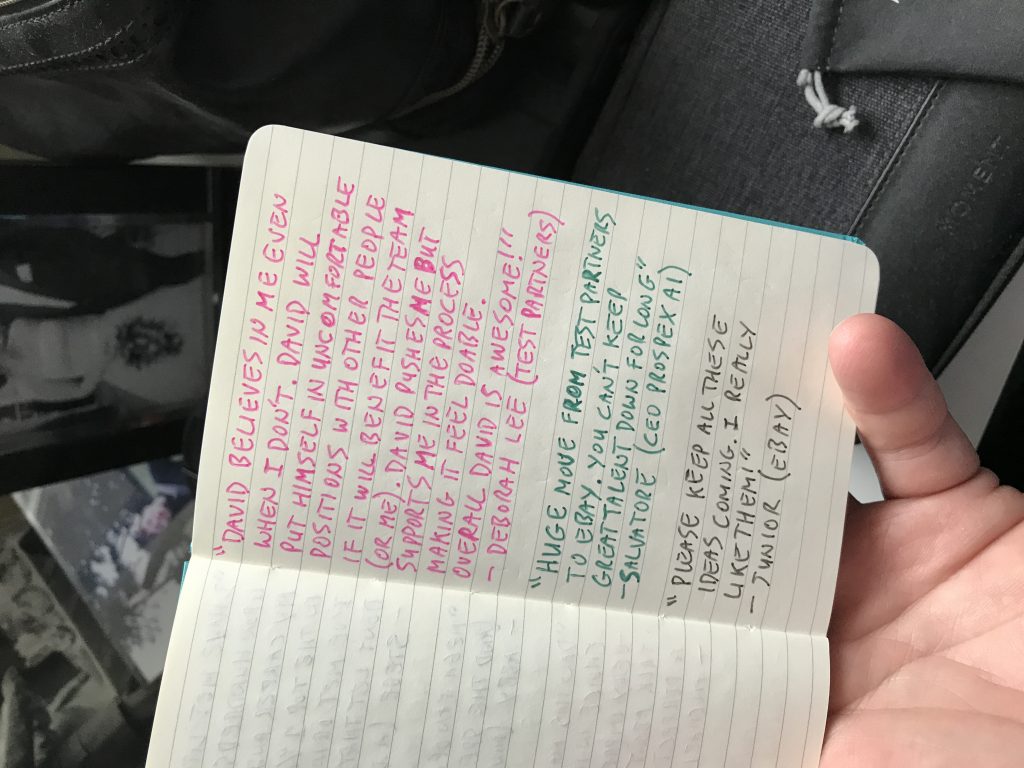 "DAVID BELIEVES IN ME EVEN
WHEN I DON'T. DAVID WILL
PUT HIMSELF IN UNCOMFORTABLE
POSITIONS WITH OTHER PEOPLE
IF IT WILL BENEFIT THE TEAM
(OR ME). DAVID PUSHES ME BUT
SUPPORTS ME IN THE PROCESS
MAKING IT FEEL DOABLE.
OVERALL DAVID IS AWESOME!!"
- DEBORAH LEE (TEST PARTNERS)
"HUGE MOVE FROM TEST PARTNERS
TO EBAY. YOU CAN'T KEEP
GREAT TALENT DOWN FOR LONG"
- SALVATORE (CEO PROSPEX AI)
"PLEASE KEEP ALL THESE
IDEAS COMING. I REALLY
LIKE THEM!"
- JUNIOR (EBAY)
MOMENT